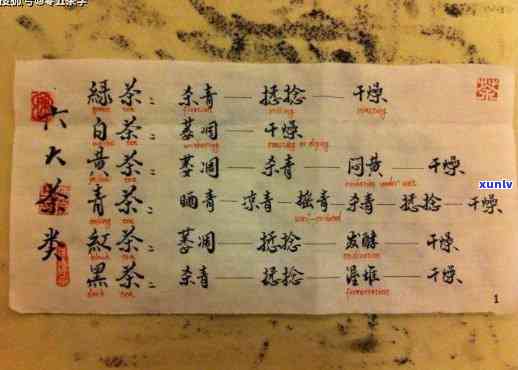 搜狐号@零五茶学
六大茶类
綠茶：杀青——揉捻——干燥
green tea rolling roasting
白茶：萎凋——干燥
white tea withering roasting or drying
黄茶：萎凋——杀青——闷黄——干燥
tea
青茶：晒青——凉青——摇青——杀青——揉捻——干燥
oolong tea
紅茶：萎凋——揉捻——发酵——干燥
black tea
黑茶：杀青——揉捻——渥堆——干燥
dark tea fermentation
茶
xunlv
1